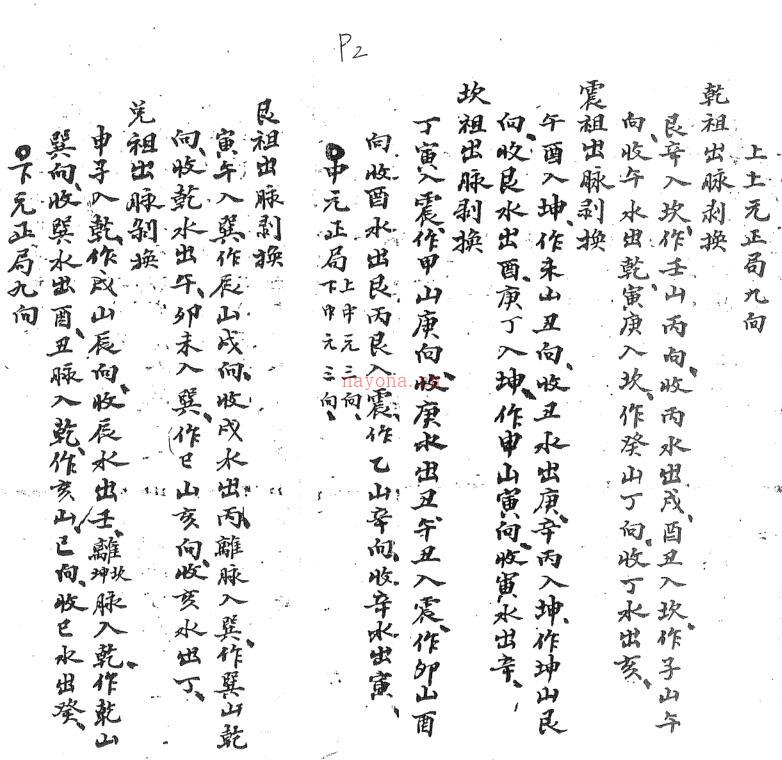 P2
上上元正局九向
乾祖出脉剥换
艮辛入坎、作壬山丙向、收丙水出戌、酉丑入坎、作子山午
向、收午水出乾、寅庚入坎、作癸山丁向、收丁水出亥、
震祖出脉剥换
午酉入坤、作未山丑向、收丑水出庚、辛丙入坤、作坤山艮
向、收艮水出酉、庚丁入坤、作申山寅向、收寅水出辛、
坎祖出脉剥换
丁寅入震、作甲山庚向、收庚水出丑、午丑入震、作卯山酉
向、收酉水出艮、丙艮入震、作乙山辛向、收辛水出寅、
中元正局上中元三向、下中元三向、
艮祖出脉剥换
寅午入巽、作辰山戌向、收戌水出丙、離脉入巽、作巽山乾
向、收乾水出午、卯未入巽、作巳山亥向、收亥水出丁、
兑祖出脉剥换
申子入乾、作戌山辰向、收辰水出壬、離坎坤脉入乾、作乾山
巽向、收巽水出酉、丑脉入乾、作亥山、巳向、收巳水出癸、
下元正局九向
nayona.cn